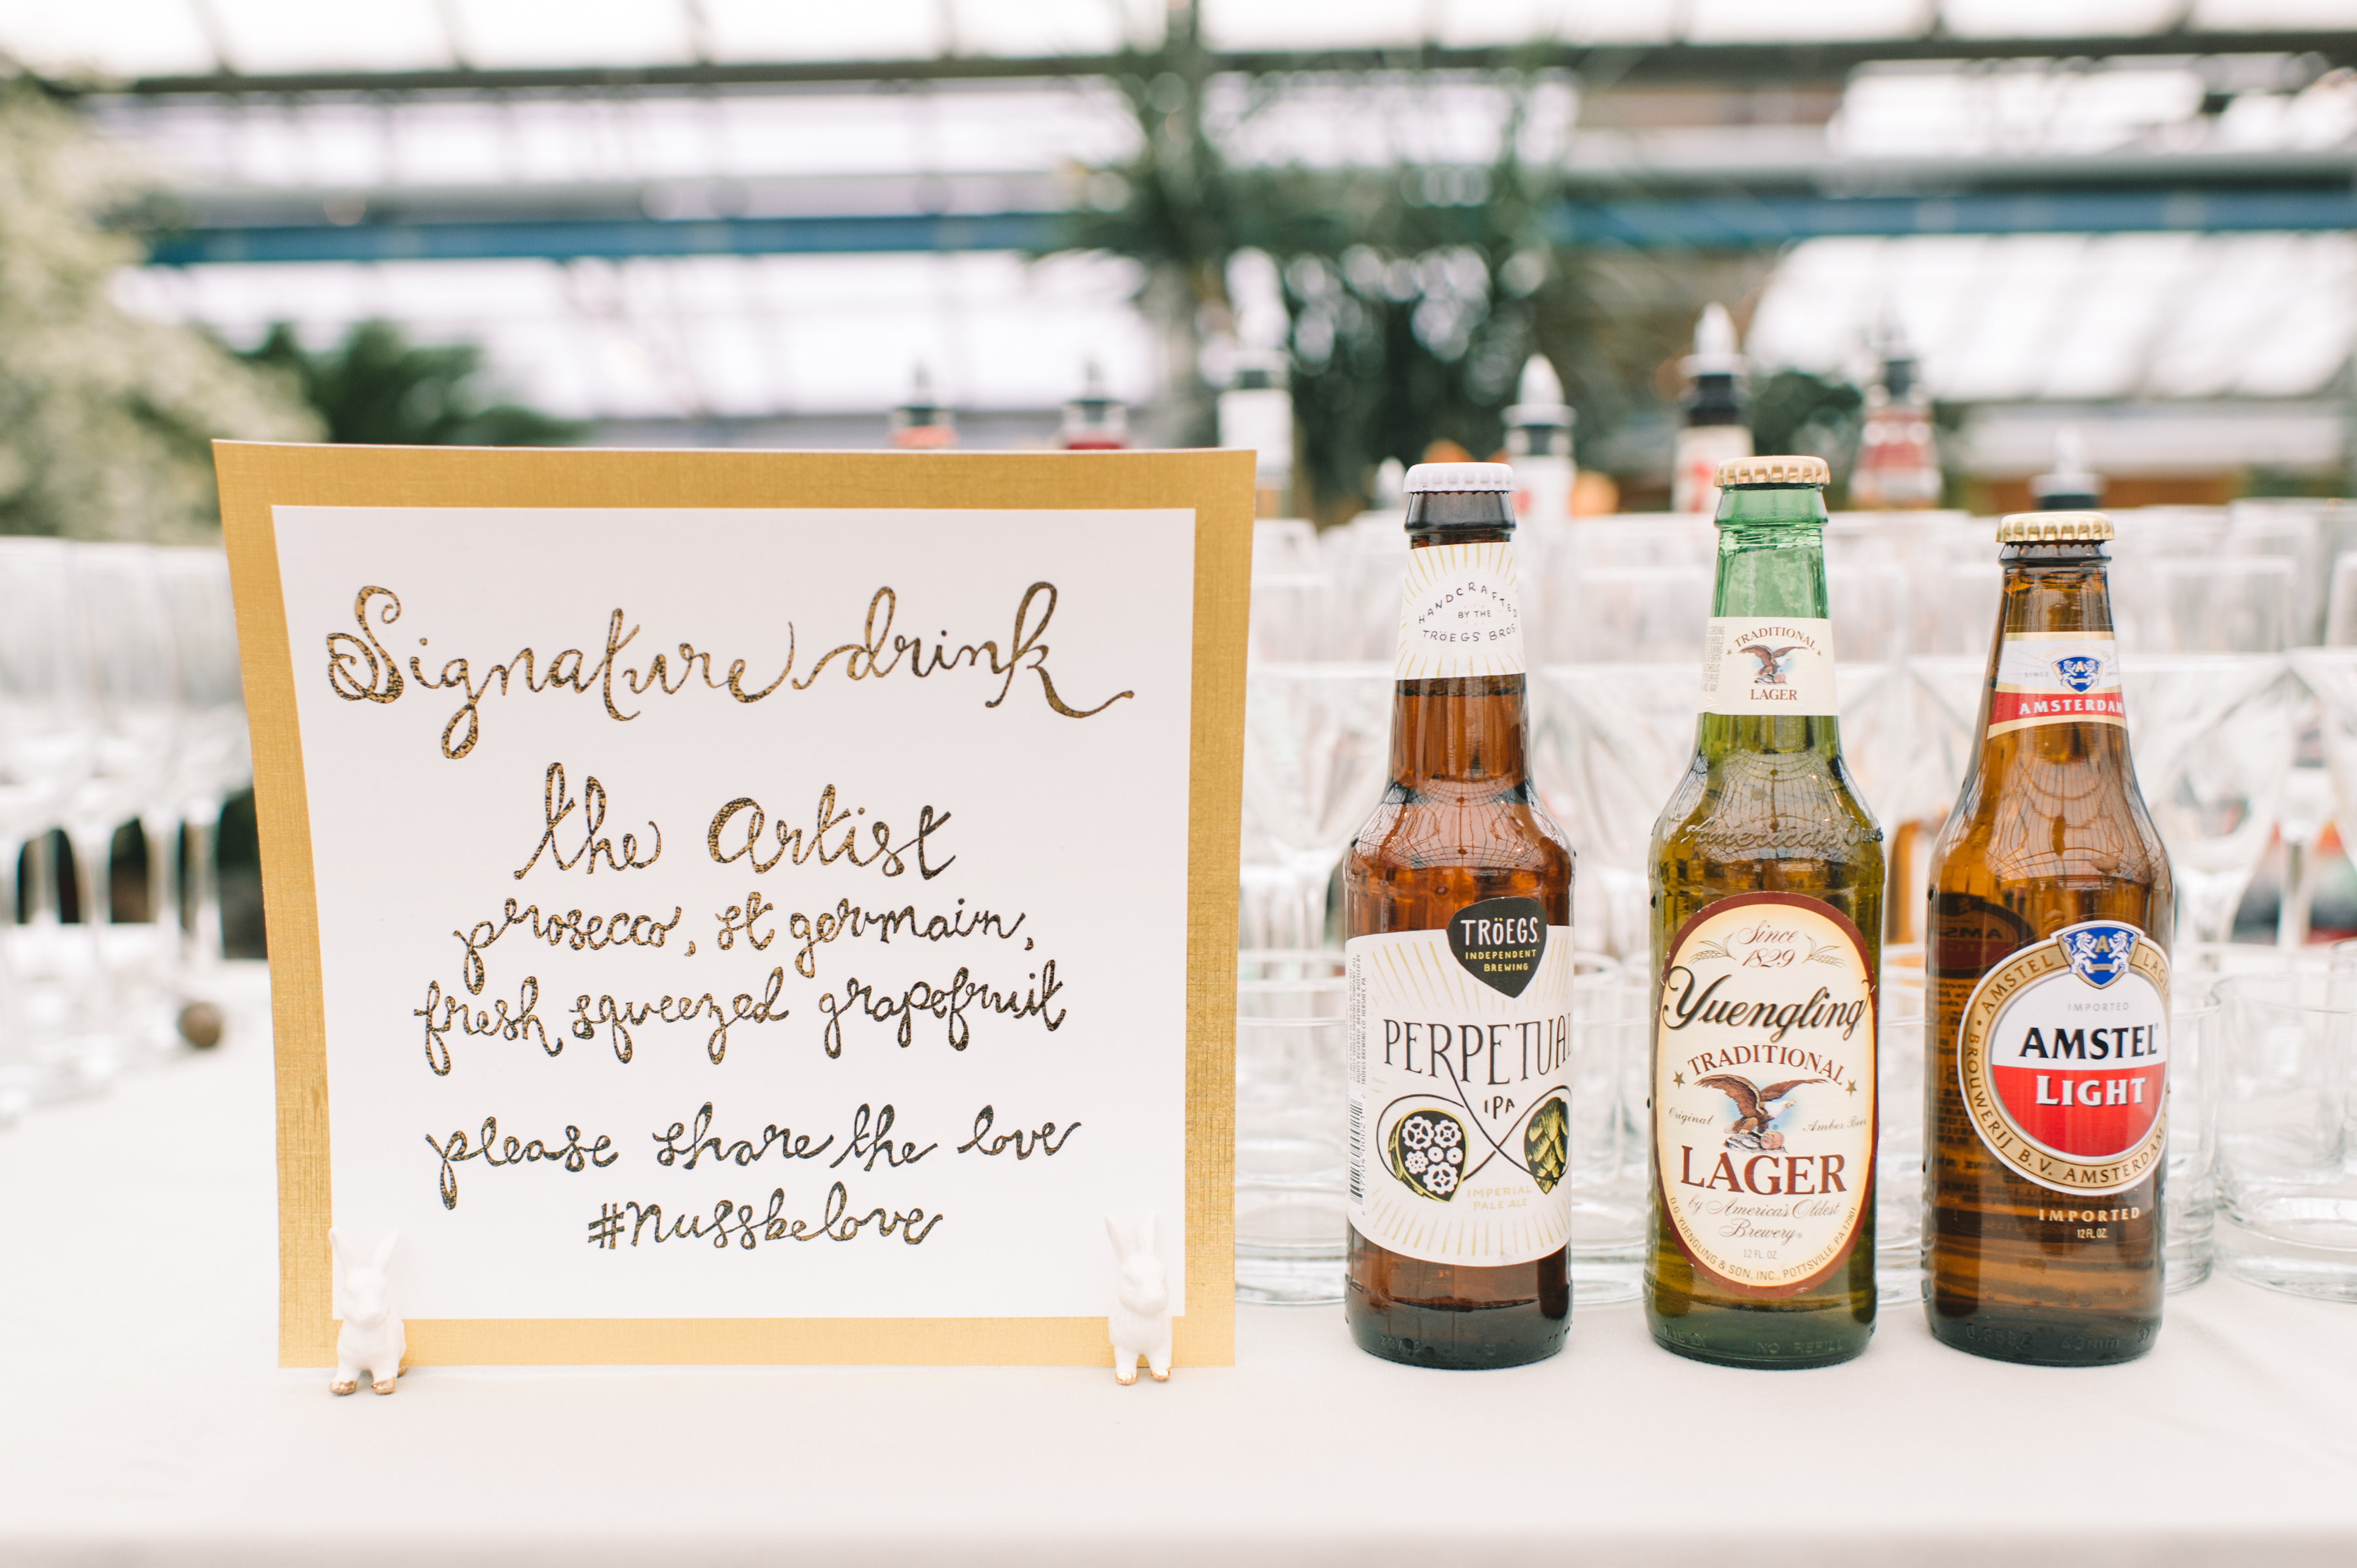 Signature drink
the Artist
prosecco, st germain,
fresh squeezed grapefruit
please share the love
#nussbelove
HANDCRAFTED
BY THE
TRÖEGS BROS.
TRÖEGS
INDEPENDENT
BREWING
PERPETUAL
IPA
IMPERIAL
PALE ALE
TRADITIONAL
LAGER
Since
1829
Yuengling
TRADITIONAL
Original Amber Beer
LAGER
by America's Oldest
Brewery
12 FL. OZ.
D.G. YUENGLING & SON, INC., POTTSVILLE, PA 17901
NO REFILL
SINCE
A
AMSTERDAM
A
AMSTEL LAGER
IMPORTED
AMSTEL
LIGHT
BROUWERIJ B.V. AMSTERDAM
IMPORTED
12 FL. OZ.